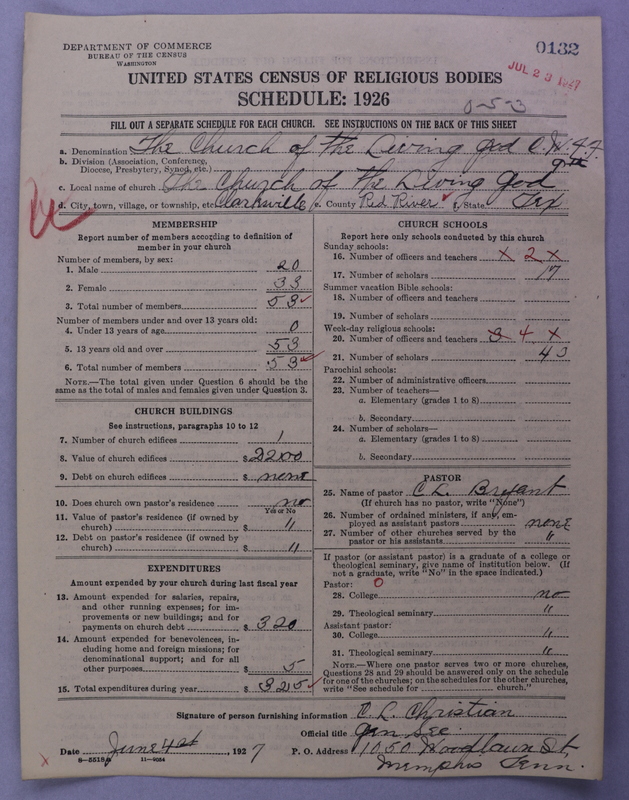 DEPARTMENT OF COMMERCE
BUREAU OF THE CENSUS
WASHINGTON
0132
JUL 23 1927
UNITED STATES CENSUS OF RELIGIOUS BODIES
SCHEDULE: 1926
0-5-3
FILL OUT A SEPARATE SCHEDULE FOR EACH CHURCH. SEE INSTRUCTIONS ON THE BACK OF THIS SHEET
a. Denomination The Church of the Living God C.W.F.F.
b. Division (Association, Conference, Diocese, Presbytery, Synod, etc.)
c. Local name of church The Church of the Living God
d. City, town, village, or township, etc. Clarksville e. County Red River f. State Tex
MEMBERSHIP
Report number of members according to definition of member in your church
Number of members, by sex:
1. Male 20
2. Female 33
3. Total number of members 53
Number of members under and over 13 years old:
4. Under 13 years of age 0
5. 13 years old and over 53
6. Total number of members 53
NOTE.—The total given under Question 6 should be the same as the total of males and females given under Question 3.
CHURCH BUILDINGS
See instructions, paragraphs 10 to 12
7. Number of church edifices 1
8. Value of church edifices $ 2200
9. Debt on church edifices $ none
10. Does church own pastor's residence no
Yes or No
11. Value of pastor's residence (if owned by church) $ "
12. Debt on pastor's residence (if owned by church) $ "
EXPENDITURES
Amount expended by your church during last fiscal year
13. Amount expended for salaries, repairs, and other running expenses; for improvements or new buildings; and for payments on church debt $ 320
14. Amount expended for benevolences, including home and foreign missions; for denominational support; and for all other purposes $ 5
15. Total expenditures during year $ 325
CHURCH SCHOOLS
Report here only schools conducted by this church
Sunday schools:
16. Number of officers and teachers x 2 x
17. Number of scholars 17
Summer vacation Bible schools:
18. Number of officers and teachers
19. Number of scholars
Week-day religious schools:
20. Number of officers and teachers 3 4 x
21. Number of scholars 43
Parochial schools:
22. Number of administrative officers
23. Number of teachers—
a. Elementary (grades 1 to 8)
b. Secondary
24. Number of scholars—
a. Elementary (grades 1 to 8)
b. Secondary
PASTOR
25. Name of pastor C L Bryant
(If church has no pastor, write "None")
26. Number of ordained ministers, if any, employed as assistant pastors none
27. Number of other churches served by the pastor or his assistants "
If pastor (or assistant pastor) is a graduate of a college or theological seminary, give name of institution below. (If not a graduate, write "No" in the space indicated.)
Pastor: 0
28. College no
29. Theological seminary "
Assistant pastor:
30. College "
31. Theological seminary "
NOTE.—Where one pastor serves two or more churches, Questions 28 and 29 should be answered only on the schedule for one of the churches; on the schedules for the other churches, write "See schedule for church."
Signature of person furnishing information C. L. Christian
Official title Gen Sec.
Date June 4, 1927 P. O. Address 1050 Woodlawn St.
Memphis Tenn.
11-9034